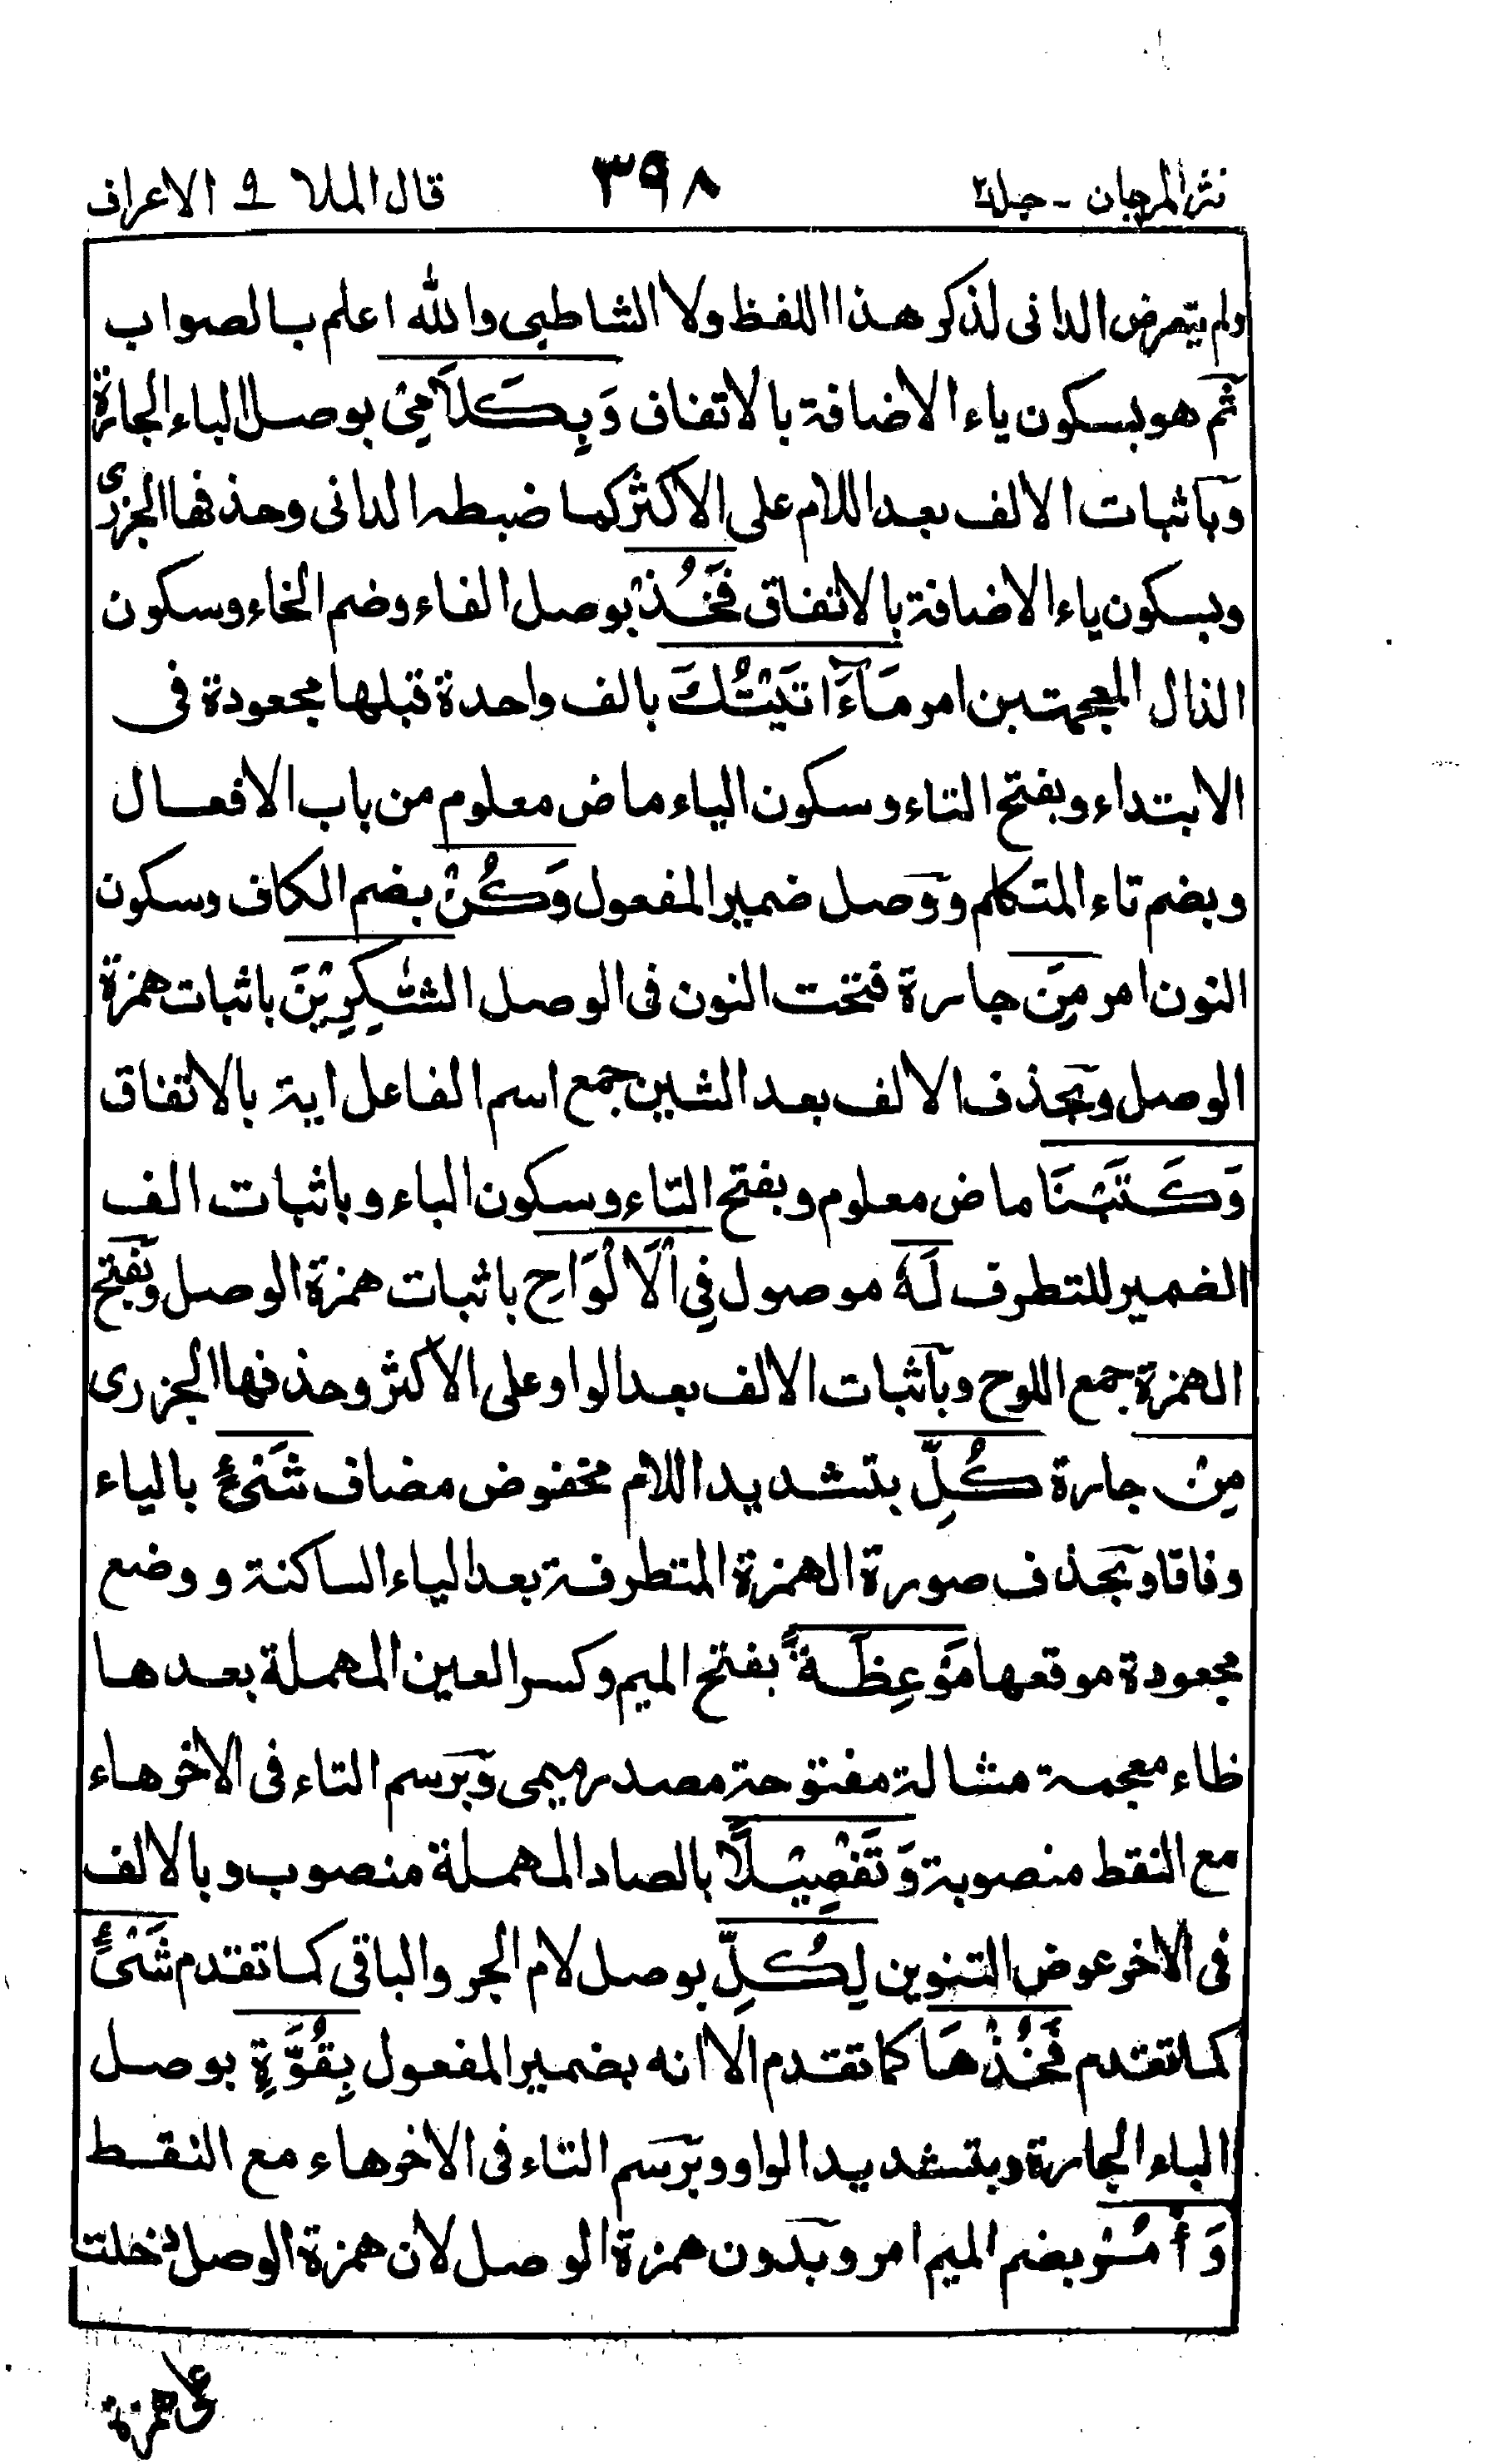 نثر المرجان - جلد٢ ٣٩٨ قال الملا ٩ الاعراف
ولم يتعرض الدانى لذكر هذا اللفظ ولا الشاطبى والله اعلم بالصواب
ثم هو بسكون ياء الاضافة بالاتفاق وَبِكَلَامِىْ بوصل الباء الجارة
وباثبات الالف بعد اللام على الاكثر كما ضبطه الدانى وحذفها الجزرى
وبسكون ياء الاضافة بالاتفاق فَخُذْ بوصل الفاء وضم الخاء وسكون
الذال المعجمتين امر مَآءَاتَيْتُكَ بالف واحدة قبلها مجعودة فى
الابتداء وبفتح التاء وسكون الياء ماض معلوم من باب الافعال
وبضم تاء المتكلم ووصل ضمير المفعول وَكُنْ بضم الكاف وسكون
النون امر مِنَ جارة فتحت النون فى الوصل الشّٰكِرِيْنَ باثبات همزة
الوصل وبحذف الالف بعد الشين جمع اسم الفاعل اية بالاتفاق
وَكَتَبْنَا ماض معلوم وبفتح التاء وسكون الباء وباثبات الف
الضمير للتطرف لَهٗ موصول فِى اْلَالْوَاحِ باثبات همزة الوصل وبفتح
الهمزة جمع اللوح وباثبات الالف بعد الواو على الاكثر وحذفها الجزرى
مِنْ جارة كُلِّ بتشديد اللام مخفوض مضاف شَىْءٍ بالياء
وفاقا وبحذف صورة الهمزة المتطرفة بعد الياء الساكنة ووضع
مجعودة موقعها مَوْعِظَةً بفتح الميم وكسر العين المهملة بعدها
ظاء معجمة مشالة مفتوحة مصدر ميمى وبرسم التاء فى الاخر هاء
مع النقط منصوبة وَتَفْصِيْلًا بالصاد المهملة منصوب وبالالف
فى الاخر عوض التنوين لِكُلِّ بوصل لام الجر والباقى كما تقدم شَىْءٍ
كما تقدم فَخُذْهَا كما تقدم الا انه بضمير المفعول بِقُوَّةٍ بوصل
الباء الجارة وبتشديد الواو وبرسم التاء فى الاخر هاء مع النقط
وَأْمُرْ بضم الميم امر وبدون همزة الوصل لان همزة الوصل دخلت
على همزة